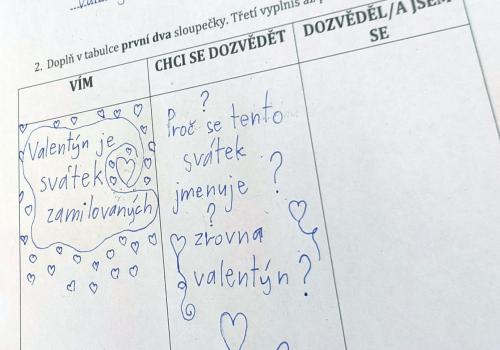 2. Doplň v tabulce první dva sloupečky. Třetí vyplníš až
VÍM
CHCI SE DOZVĚDĚT
DOZVĚDĚL/A JSEM
SE
Valentýn je
svátek
zamilovaných
?
Proč se tento
svátek
jmenuje ?
?
zrovna
valentýn ?